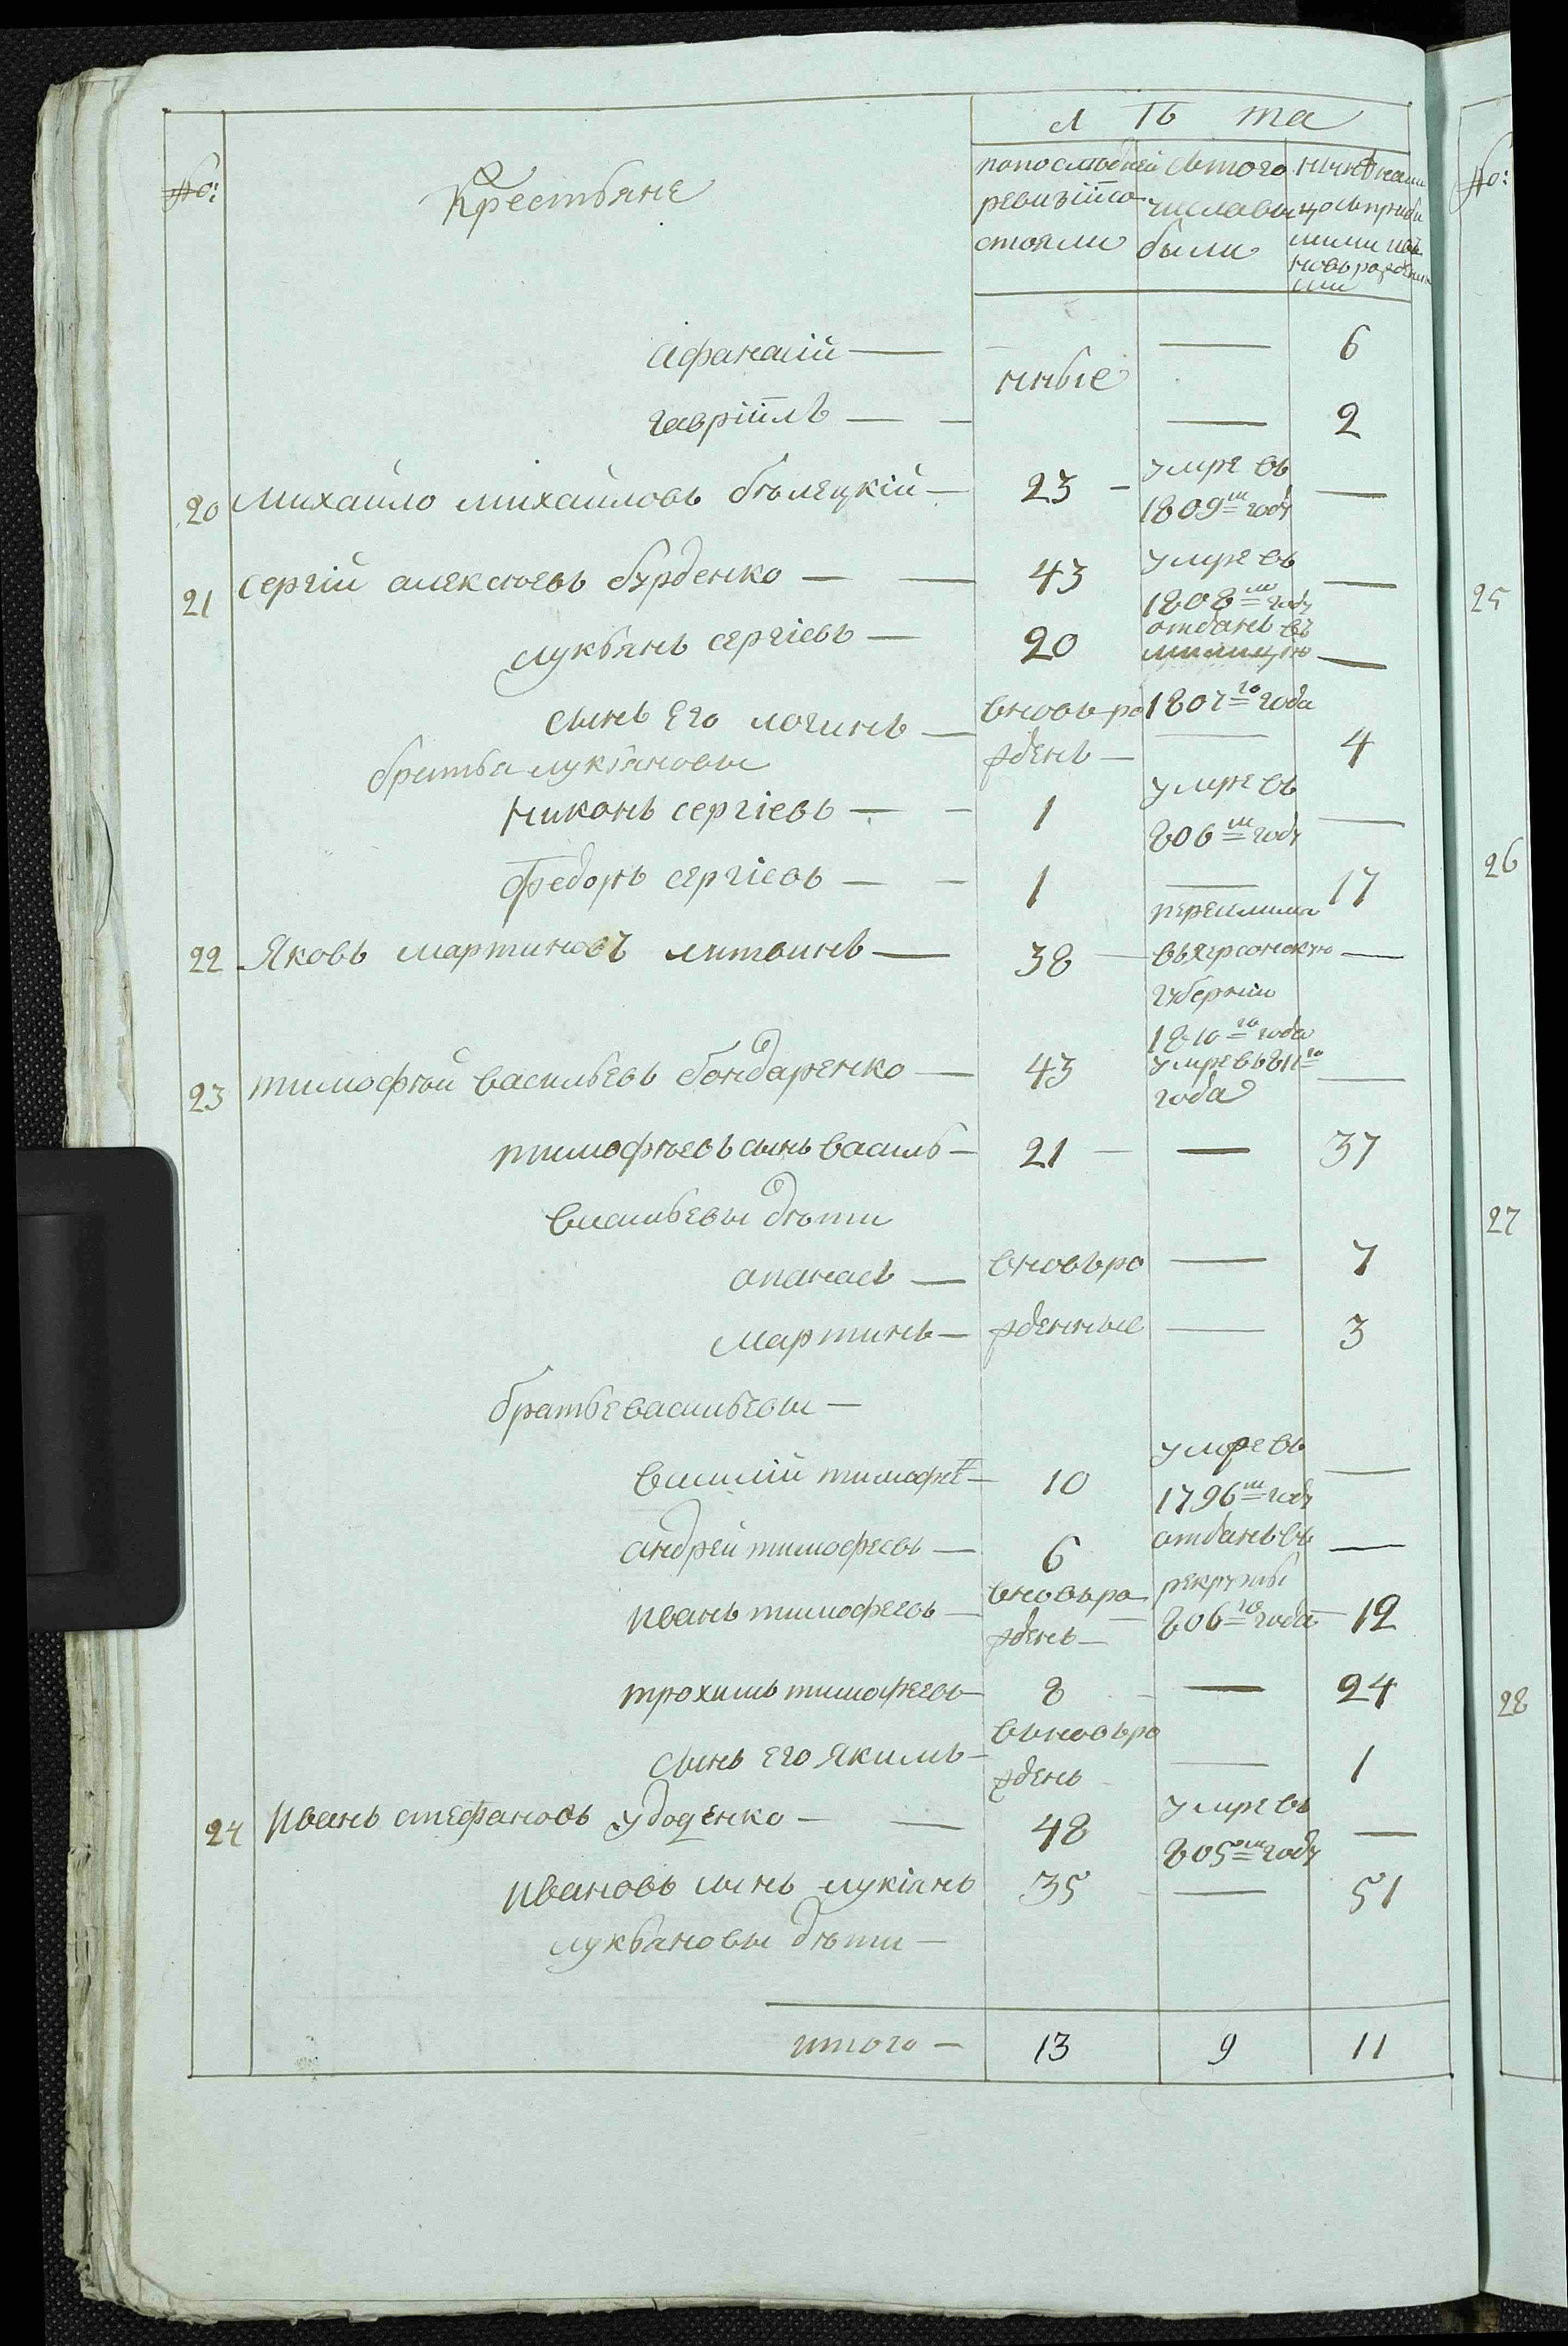 Л Ѣ та
№:
Крестьяне
по последней ревизіи состояли
съ того числа выбыли
ныне налицо съ прибылыми и вновь рожденными
Афанасій — — 6
нные
гавріилъ — — — 2
20 Михайло михайловъ бѣлецкій — 23 — умре въ 1809м году —
21 Сергій алексѣевъ бурденко — — 43 умре въ 1808м году —
лукьянъ сергіевъ — 20 отданъ въ милицію 1807го года —
сынъ Его логинъ — вновь рожденъ — — 4
братья лукіановы
никонъ сергіевъ — — 1 умре въ 806м году —
Федоръ сергіевъ — — 1 — 17
22 Яковъ мартиновъ литвинъ — 38 — переселился въ херсонскую губернію 1810го года —
23 тимофѣй васильевъ бондаренко — 43 умре въ 811го года —
тимофѣевъ сынъ василь — 21 — — 37
васильевы дѣти
апанасъ — вновь ро — 7
мартинъ — жденные — 3
братье васильевы —
василій тимофее — 10 умре въ 1796м году —
андрей тимофеевъ — 6 отданъ въ рекруты 806го года —
иванъ тимофеевъ — вновь рожденъ — — 12
трохимъ тимофеевъ — 8 — — 24
сынъ его якимъ — вьновь рожденъ — 1
24 иванъ стефановъ удоденко — — 48 умре въ 805м году —
ивановъ сынъ лукіянъ 35 — 51
лукьановы дѣти —
итого — 13 9 11
№:
25
26
27
28